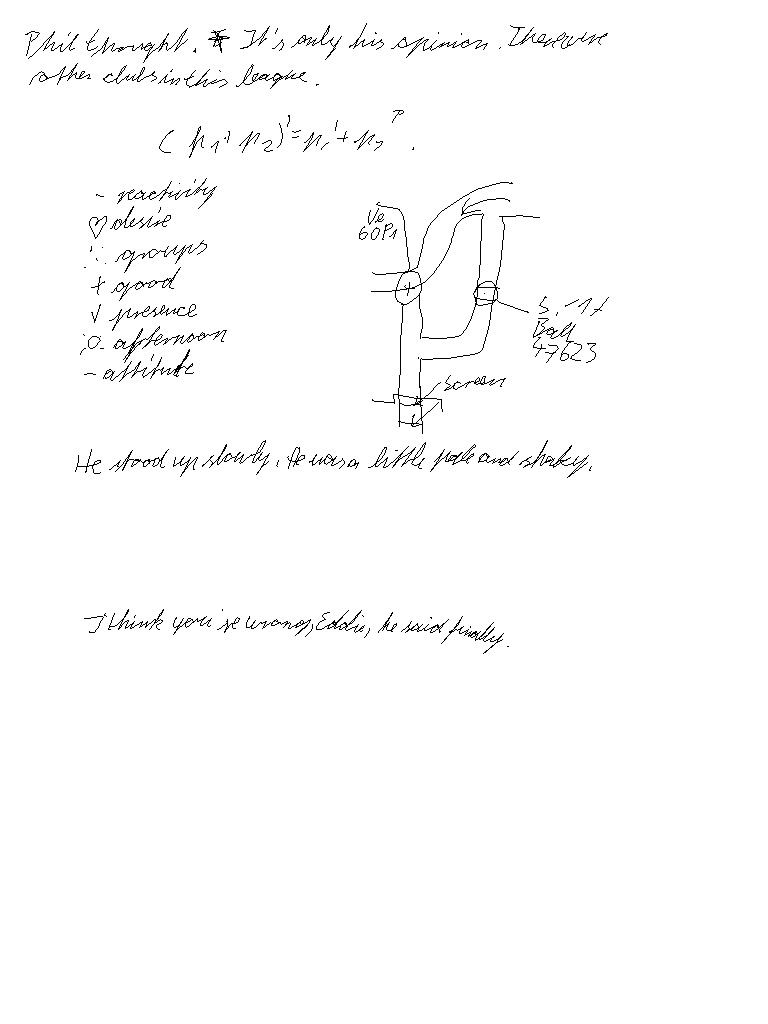 Phil thought. It's only his opinion. There were
other clubs in this league.
(p₁ + p₂)' = p₁' + p₂'
- reactivity
♡ desire
groups
+ good
√ presence
afternoon
- attitude
Ve
60P1
Ball
47623
screen
He stood up slowly. He was a little pale and shaky.
I think you're wrong, Eddie, he said finally.